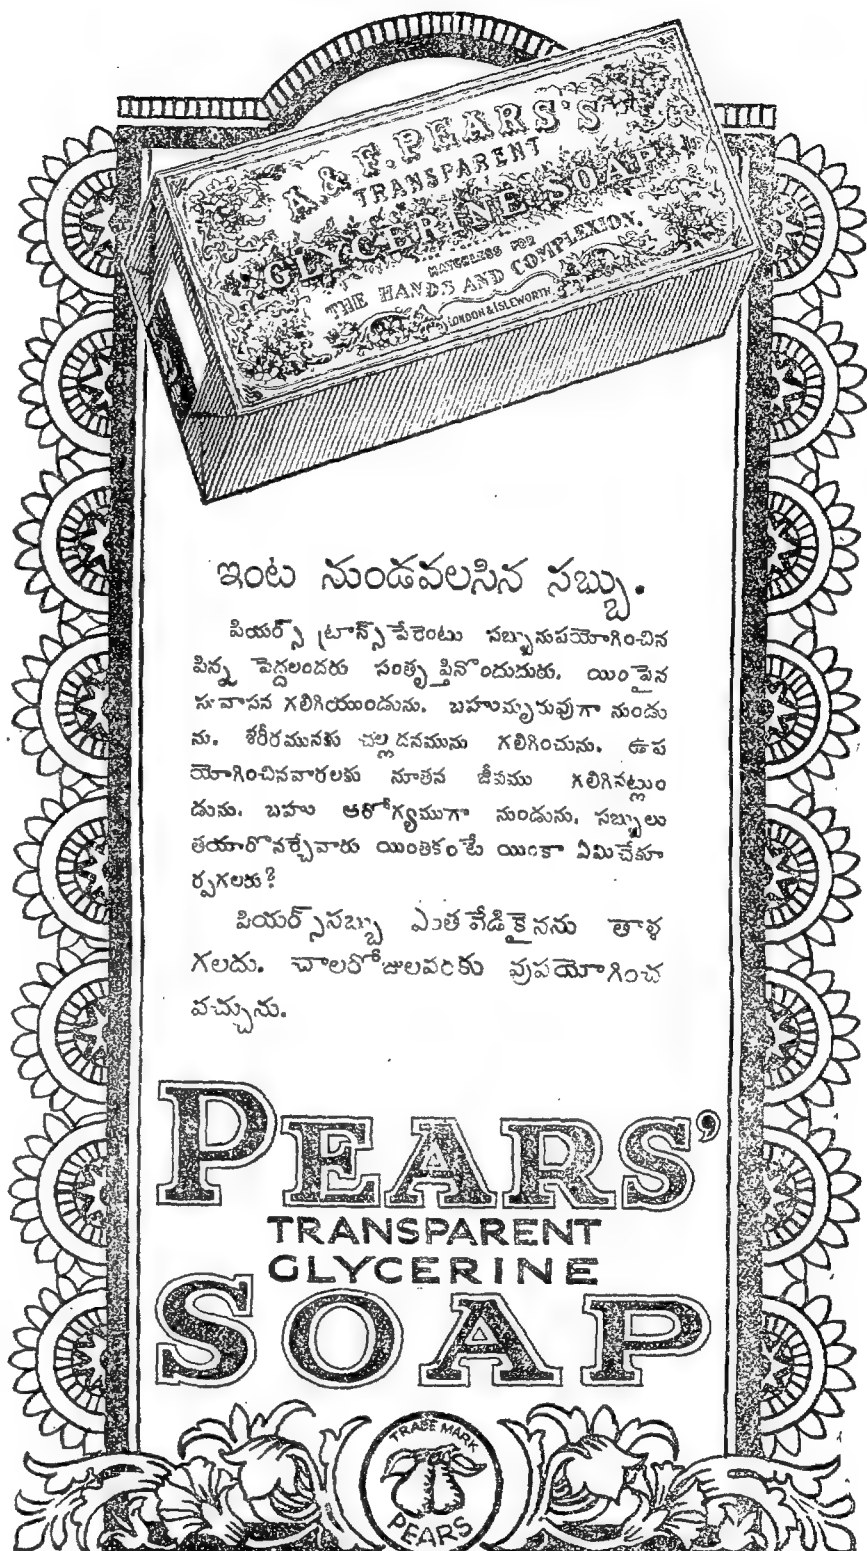 A & F. PEARS'S
TRANSPARENT
GLYCERINE SOAP
MATCHLESS FOR
THE HANDS AND COMPLEXION.
LONDON & ISLEWORTH
ఇంట నుండవలసిన సబ్బు.
పియర్స్ ట్రాన్స్‌పేరెంటు సబ్బునుపయోగించిన
పిన్న పెద్దలందరు సంతృప్తినొందుదురు. యింపైన
సువాసన గలిగియుండును. బహుమృదువుగా నుండు
ను. శరీరమునకు చల్లదనమును గలిగించును. ఉప
యోగించినవారలకు నూతన జీవము గలిగినట్లుం
డును. బహు ఆరోగ్యముగా నుండును. సబ్బులు
తయారొనర్చేవారు యింతకంటే యింకా ఏమిచేకూ
ర్పగలరు?
పియర్స్‌సబ్బు ఎంత వేడికైనను తాళ
గలదు. చాలరోజులవరకు వుపయోగించ
వచ్చును.
PEARS'
TRANSPARENT
GLYCERINE
SOAP
TRADE MARK
PEARS